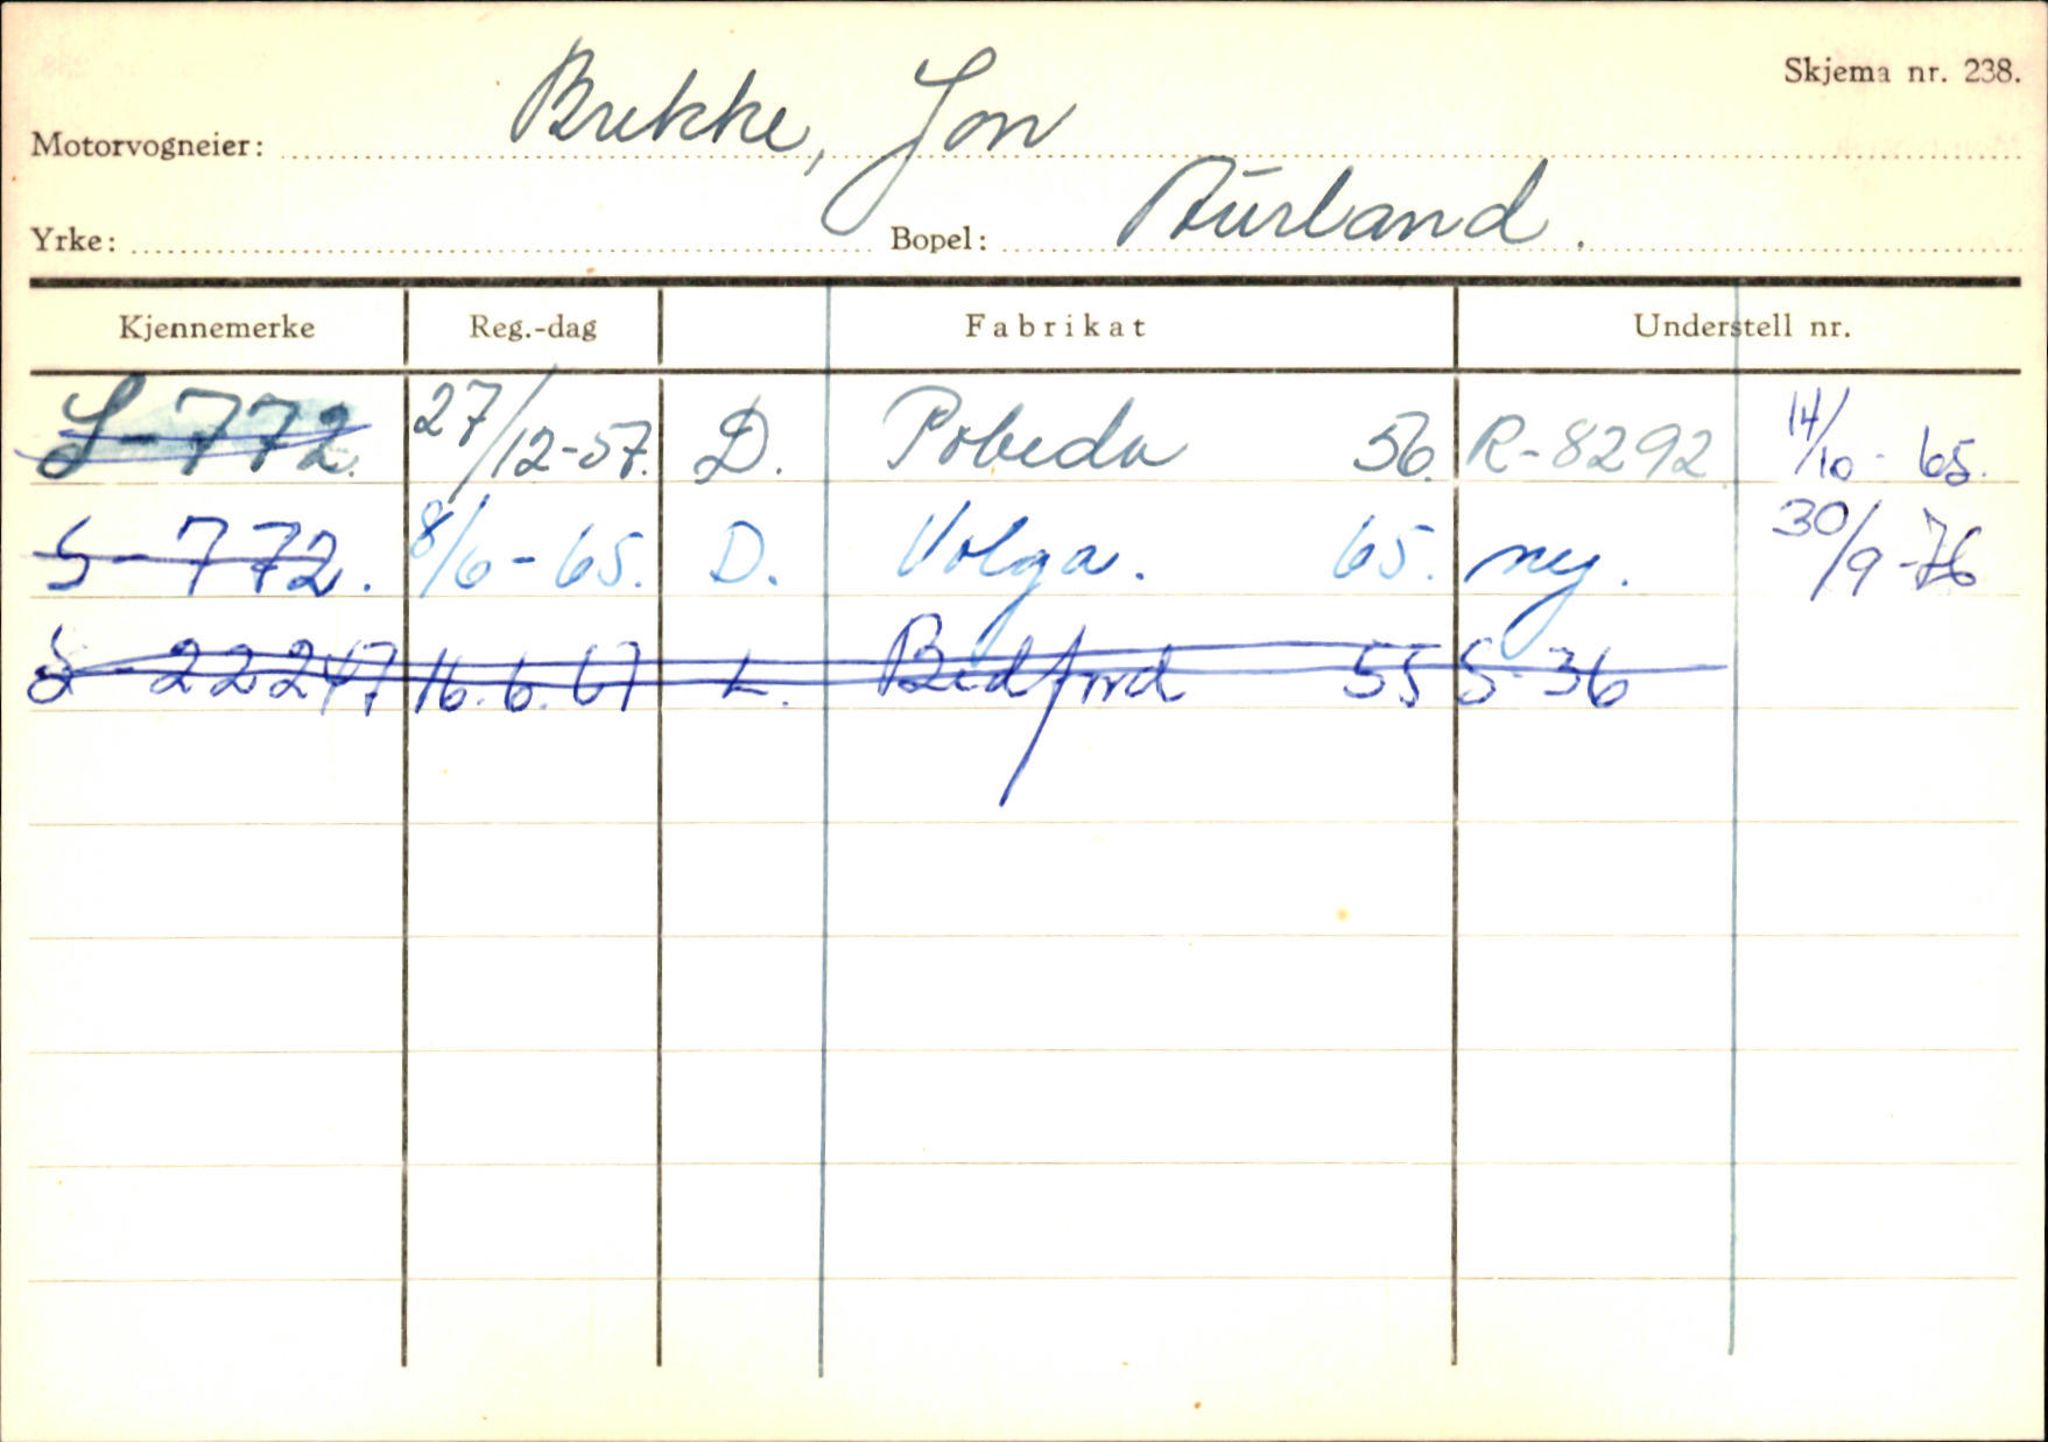 Skjema nr. 238.
Motorvogneier: Brekke, Jon
Yrke: Bopel: Aurland.
Kjennemerke Reg.-dag Fabrikat Understell nr.
S-772. 27/12-57. D. Pobeda 56. R-8292. 14/10-65.
S-772. 8/6-65. D. Volga. 65. ny. 30/9-76
S-22247 16.6.67 L. Bedford 55 S-36